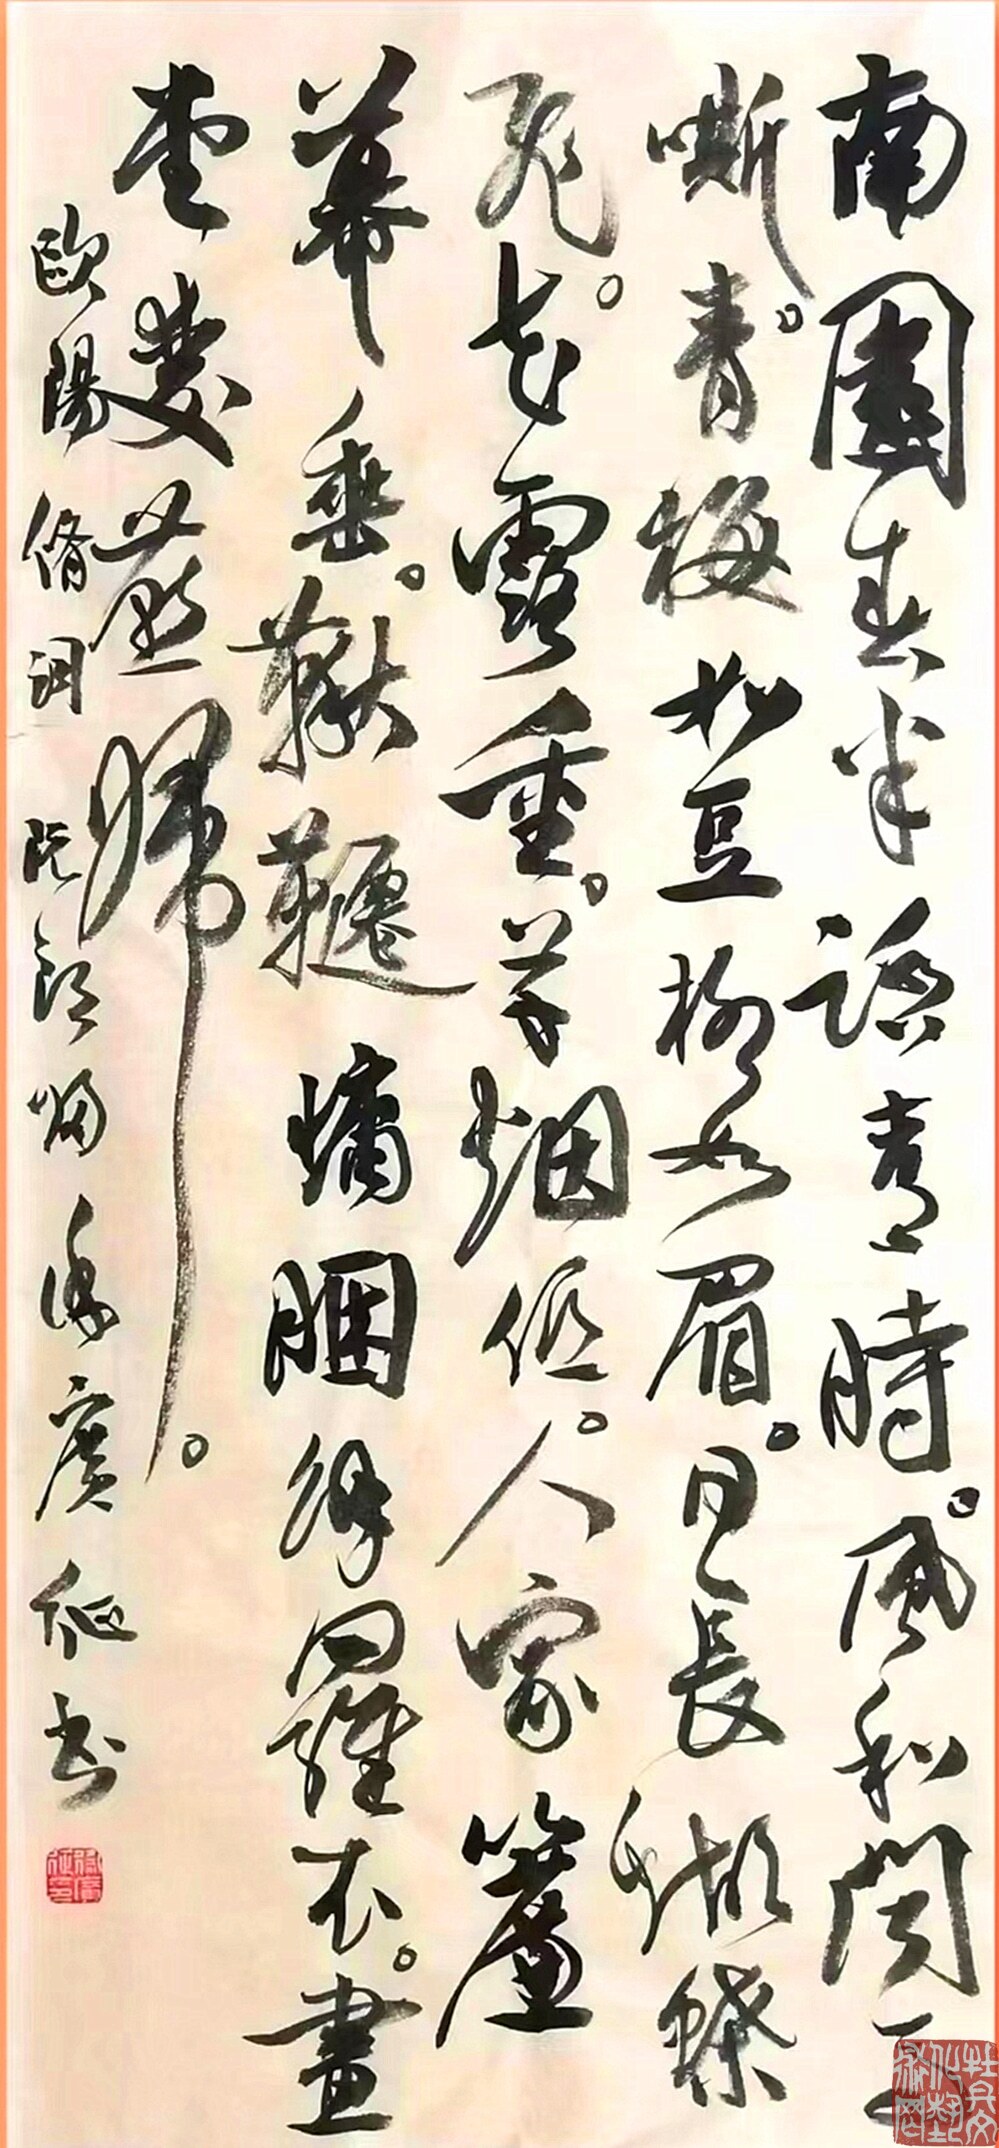 南園春半踏青時。風和聞馬
嘶。青梅如豆柳如眉。日長蝴蝶
飛。花露重。草烟低。人家簾
幕垂。鞦韆慵睏解羅衣。畫
堂雙燕歸。
歐陽脩詞 阮郎歸 徐廣征书